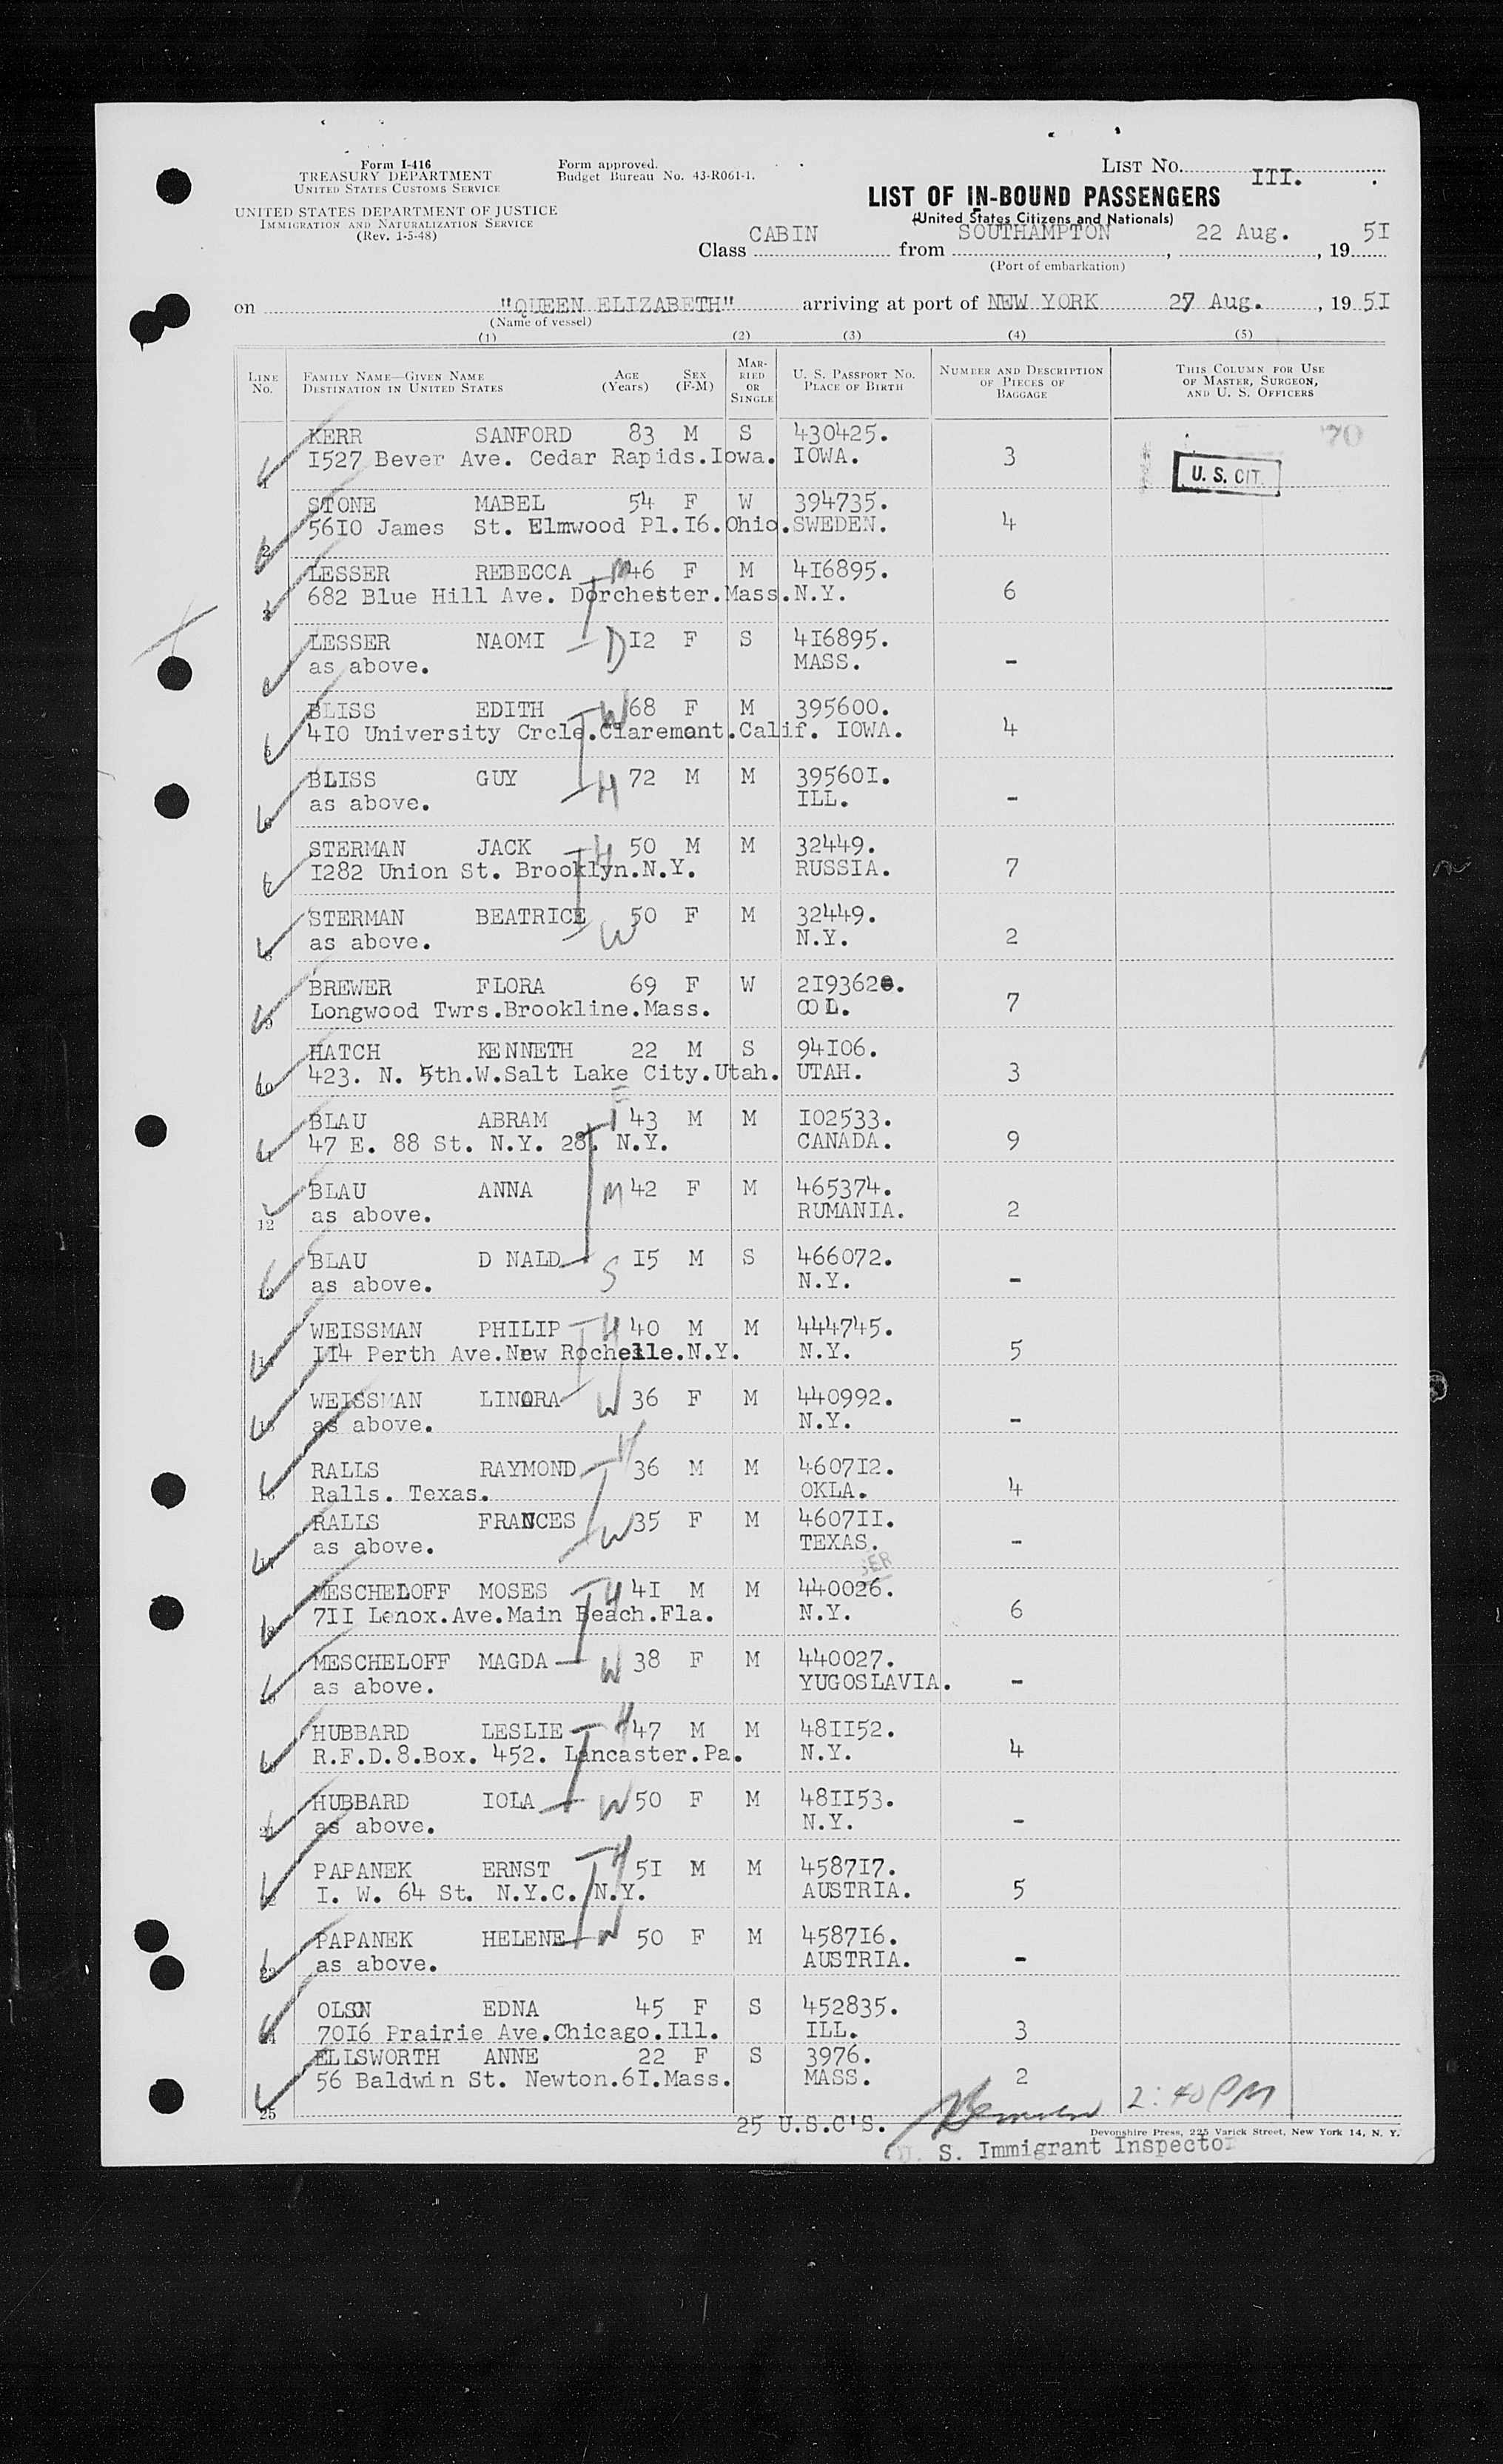 Form I-416
TREASURY DEPARTMENT
UNITED STATES CUSTOMS SERVICE
UNITED STATES DEPARTMENT OF JUSTICE
IMMIGRATION AND NATURALIZATION SERVICE
(Rev. 1-5-48)
Form approved.
Budget Bureau No. 43-R061-1.
LIST No. III.
LIST OF IN-BOUND PASSENGERS
(United States Citizens and Nationals)
Class CABIN from SOUTHAMPTON, 22 Aug., 19 5I
(Port of embarkation)
on "QUEEN ELIZABETH" arriving at port of NEW YORK 27 Aug., 19 5I
(Name of vessel)
(1) (2) (3) (4) (5)
LINE No. FAMILY NAME—GIVEN NAME DESTINATION IN UNITED STATES AGE (Years) SEX (F-M) MARRIED OR SINGLE U. S. PASSPORT NO. PLACE OF BIRTH NUMBER AND DESCRIPTION OF PIECES OF BAGGAGE THIS COLUMN FOR USE OF MASTER, SURGEON, AND U. S. OFFICERS
KERR SANFORD 83 M S 430425. 70
I527 Bever Ave. Cedar Rapids.Iowa. IOWA. 3 U. S. CIT.
STONE MABEL 54 F W 394735.
56IO James St. Elmwood Pl.I6.Ohio. SWEDEN. 4
LESSER REBECCA M 46 F M 4I6895.
682 Blue Hill Ave. Dorchester.Mass. N.Y. 6
LESSER NAOMI D I2 F S 4I6895.
as above. MASS. -
BLISS EDITH W 68 F M 395600.
4IO University Crcle.Claremont.Calif. IOWA. 4
BLISS GUY H 72 M M 39560I.
as above. ILL. -
STERMAN JACK H 50 M M 32449.
I282 Union St. Brooklyn.N.Y. RUSSIA. 7
STERMAN BEATRICE W 50 F M 32449.
as above. N.Y. 2
BREWER FLORA 69 F W 2I9362.
Longwood Twrs.Brookline.Mass. COL. 7
HATCH KENNETH 22 M S 94I06.
423. N. 5th.W.Salt Lake City.Utah. UTAH. 3
BLAU ABRAM F 43 M M I02533.
47 E. 88 St. N.Y. 28. N.Y. CANADA. 9
BLAU ANNA M 42 F M 465374.
12 as above. RUMANIA. 2
BLAU D NALD S I5 M S 466072.
as above. N.Y. -
WEISSMAN PHILIP H 40 M M 444745.
II4 Perth Ave.New Rochelle.N.Y. N.Y. 5
WEISSMAN LINORA W 36 F M 440992.
as above. N.Y. -
RALLS RAYMOND H 36 M M 4607I2.
Ralls. Texas. OKLA. 4
RALLS FRANCES W 35 F M 4607II.
as above. TEXAS. -
MESCHELOFF MOSES H 4I M M 440026.
7II Lenox.Ave.Main Beach.Fla. N.Y. 6
MESCHELOFF MAGDA W 38 F M 440027.
as above. YUGOSLAVIA. -
HUBBARD LESLIE H 47 M M 48II52.
R.F.D.8.Box. 452. Lancaster.Pa. N.Y. 4
HUBBARD IOLA W 50 F M 48II53.
as above. N.Y. -
PAPANEK ERNST H 5I M M 4587I7.
I. W. 64 St. N.Y.C. N.Y. AUSTRIA. 5
PAPANEK HELENE W 50 F M 4587I6.
as above. AUSTRIA. -
OLSON EDNA 45 F S 452835.
70I6 Prairie Ave.Chicago.Ill. ILL. 3
ELLSWORTH ANNE 22 F S 3976.
56 Baldwin St. Newton.6I.Mass. MASS. 2
25 2:40 PM
25 U.S.C'S.
Devonshire Press, 225 Varick Street, New York 14, N. Y.
S. Immigrant Inspector